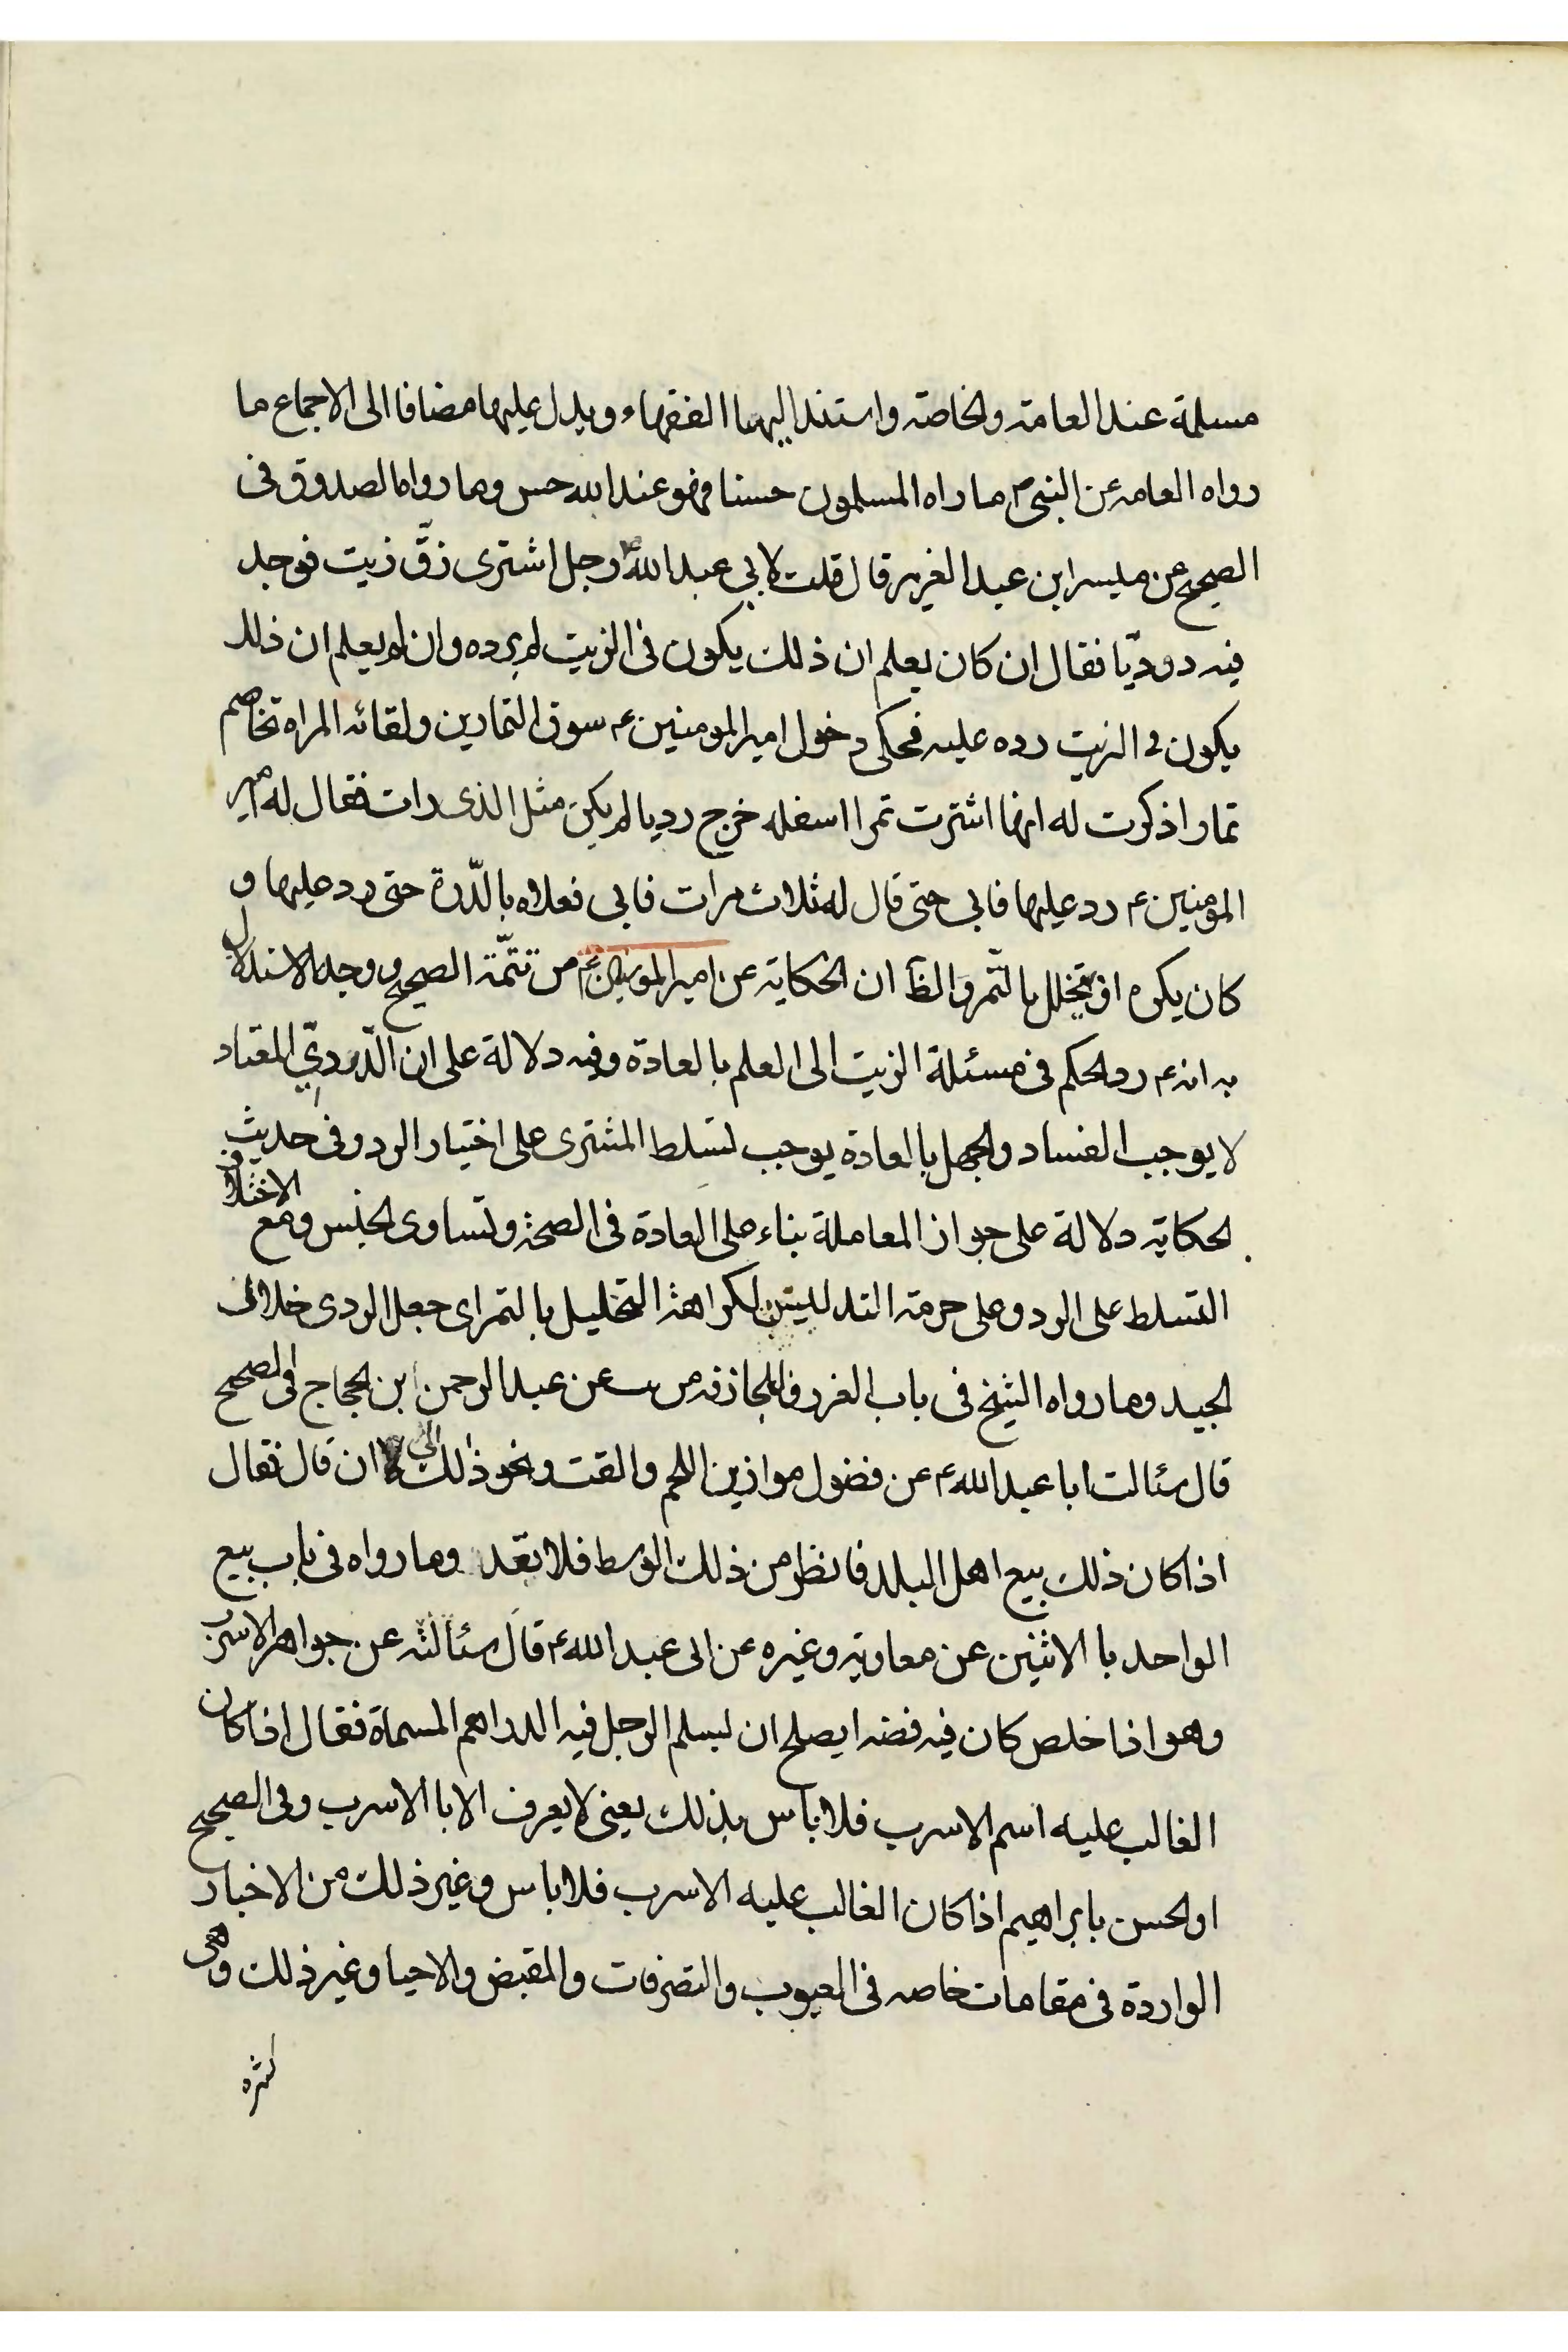 مسلمة عند العامة والخاصة واستند اليها الفقهاء ويدل عليها مضافا الى الاجماع ما
رواه العامه عن النبي ص ما راه المسلمون حسنا فهو عند الله حسن وما رواه الصدوق فى
الصحيح عن ميسر ابن عبد العزيز قال قلت لابي عبد الله ع رجل اشترى زقّ زيت فوجد
فيه درديّا فقال ان كان يعلم ان ذلك يكون فى الزيت لم يرده وان لم يعلم ان ذلك
يكون فى الزيت رده عليه فحكى دخول امير المومنين ع سوق التمارين ولقائه المراه تخاصم
تمارا ذكرت له انها اشترت تمرا اسفله خرج رديا لم يكن مثل الذى رات فقال له امير
المومنين ع رد عليها فابى حتى قال له ثلاث مرات فابى فعلاه بالدّرة حتى رد عليها و
كان يكره ان يخلل بالتّمر والظ ان الحكاية عن امير المومنين ع من تتمّة الصحيح ووجه الاستدلال
به انه ع رد الحكم فى مسئلة الزيت الى العلم بالعادة وفيه دلالة على ان الدّرديّ المعتاد
لا يوجب الفساد والجهل بالعادة يوجب لتسلط المشترى على اختيار الرد وفى حديث
الحكاية دلالة على جواز المعاملة بناء على العادة فى الصحة وتساوى الجنس ومع الاختلاف
التسلط على الرد وعلى حرمة التدليس لكراهة التخليل بالتمر اى جعل الردى خلال
الجيد وما رواه الشيخ فى باب الغرر والمجازفه عن عبد الرحمن ابن الحجاج فى الصحيح
قال سئالت ابا عبد الله ع عن فضول موازين اللحم والقت ونحو ذلك الى ان قال فقال
اذا كان ذلك بيع اهل البلد فانظر من ذلك الوسط فلا تعّد وما رواه فى باب بيع
الواحد بالاثنين عن معاوية وغيره عن ابى عبد الله ع قال سئالته عن جواهر الاسرب
وهو اذا خلص كان فيه فضه ايصلح ان يسلم الرجل فيه الدراهم المسماة فقال اذا كان
الغالب عليه اسم الاسرب فلا باس بذلك يعنى لا يعرف الا باالاسرب وفى الصحيح
او الحسن بابراهيم اذا كان الغالب عليه الاسرب فلا باس وغير ذلك من الاخبار
الواردة فى مقامات خاصه فى العيوب والتصرفات والمقبض والاحيا وغير ذلك وهى
كثره